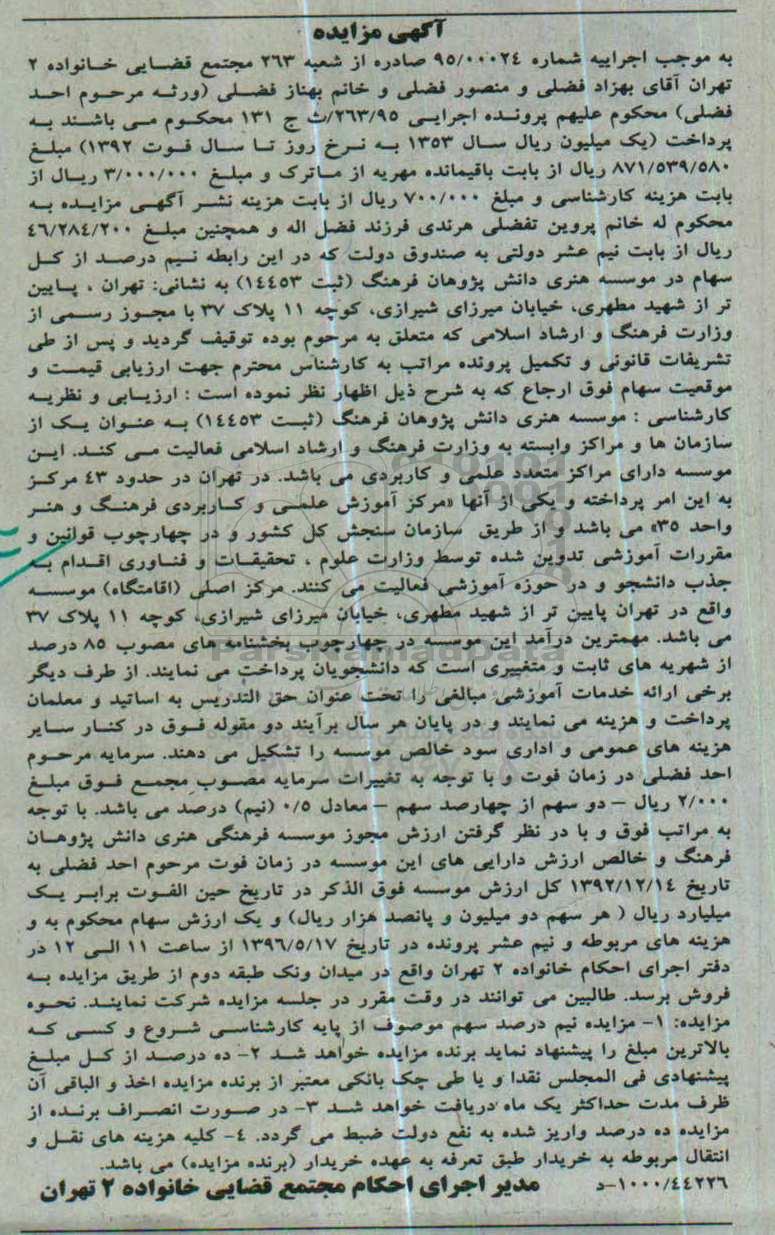 آگهی مزایده
به موجب اجراییه شماره ۹۵/۰۰۰۲۴ صادره از شعبه ۲۶۳ مجتمع قضایی خانواده ۲
تهران آقای بهزاد فضلی و منصور فضلی و خانم بهناز فضلی (ورثه مرحوم احد
فضلی) محکوم علیهم پرونده اجرایی ۲۶۳/۹۵/ث ج ۱۳۱ محکوم می باشند به
پرداخت (یک میلیون ریال سال ۱۳۵۳ به نرخ روز تا سال فوت ۱۳۹۲) مبلغ
۸۷۱/۵۳۹/۵۸۰ ریال از بابت باقیمانده مهریه از ماترک و مبلغ ۳/۰۰۰/۰۰۰ ریال از
بابت هزینه کارشناسی و مبلغ ۷۰۰/۰۰۰ ریال از بابت هزینه نشر آگهی مزایده به
محکوم له خانم پروین تفضلی هرندی فرزند فضل اله و همچنین مبلغ ۴۶/۲۸۴/۲۰۰
ریال از بابت نیم عشر دولتی به صندوق دولت که در این رابطه نیم درصد از کل
سهام در موسسه هنری دانش پژوهان فرهنگ (ثبت ۱۴۴۵۳) به نشانی: تهران ، پایین
تر از شهید مطهری، خیابان میرزای شیرازی، کوچه ۱۱ پلاک ۳۷ با مجوز رسمی از
وزارت فرهنگ و ارشاد اسلامی که متعلق به مرحوم بوده توقیف گردید و پس از طی
تشریفات قانونی و تکمیل پرونده مراتب به کارشناس محترم جهت ارزیابی قیمت و
موقعیت سهام فوق ارجاع که به شرح ذیل اظهار نظر نموده است : ارزیابی و نظریه
کارشناسی : موسسه هنری دانش پژوهان فرهنگ (ثبت ۱۴۴۵۳) به عنوان یک از
سازمان ها و مراکز وابسته به وزارت فرهنگ و ارشاد اسلامی فعالیت می کند. این
موسسه دارای مراکز متعدد علمی و کاربردی می باشد. در تهران در حدود ۴۳ مرکز
به این امر پرداخته و یکی از آنها «مرکز آموزش علمی و کاربردی فرهنگ و هنر
واحد ۳۵» می باشد و از طریق سازمان سنجش کل کشور و در چهارچوب قوانین و
مقررات آموزشی تدوین شده توسط وزارت علوم ، تحقیقات و فناوری اقدام به
جذب دانشجو و در حوزه آموزشی فعالیت می کنند. مرکز اصلی (اقامتگاه) موسسه
واقع در تهران پایین تر از شهید مطهری، خیابان میرزای شیرازی، کوچه ۱۱ پلاک ۳۷
می باشد. مهمترین درآمد این موسسه در چهارچوب بخشنامه های مصوب ۸۵ درصد
از شهریه های ثابت و متغییری است که دانشجویان پرداخت می نمایند. از طرف دیگر
برخی ارائه خدمات آموزشی مبالغی را تحت عنوان حق التدریس به اساتید و معلمان
پرداخت و هزینه می نمایند و در پایان هر سال برآیند دو مقوله فوق در کنار سایر
هزینه های عمومی و اداری سود خالص موسسه را تشکیل می دهند. سرمایه مرحوم
احد فضلی در زمان فوت و با توجه به تغییرات سرمایه مصوب مجمع فوق مبلغ
۲/۰۰۰ ریال – دو سهم از چهارصد سهم – معادل ۰/۵ (نیم) درصد می باشد. با توجه
به مراتب فوق و با در نظر گرفتن ارزش مجوز موسسه فرهنگی هنری دانش پژوهان
فرهنگ و خالص ارزش دارایی های این موسسه در زمان فوت مرحوم احد فضلی به
تاریخ ۱۳۹۲/۱۲/۱۴ کل ارزش موسسه فوق الذکر در تاریخ حین الفوت برابر یک
میلیارد ریال ( هر سهم دو میلیون و پانصد هزار ریال) و یک ارزش سهام محکوم به و
هزینه های مربوطه و نیم عشر پرونده در تاریخ ۱۳۹۶/۵/۱۷ از ساعت ۱۱ الی ۱۲ در
دفتر اجرای احکام خانواده ۲ تهران واقع در میدان ونک طبقه دوم از طریق مزایده به
فروش برسد. طالبین می توانند در وقت مقرر در جلسه مزایده شرکت نمایند. نحوه
مزایده: ۱- مزایده نیم درصد سهم موصوف از پایه کارشناسی شروع و کسی که
بالاترین مبلغ را پیشنهاد نماید برنده مزایده خواهد شد ۲- ده درصد از کل مبلغ
پیشنهادی فی المجلس نقدا و یا طی چک بانکی معتبر از برنده مزایده اخذ و الباقی آن
ظرف مدت حداکثر یک ماه دریافت خواهد شد ۳- در صورت انصراف برنده از
مزایده ده درصد واریز شده به نفع دولت ضبط می گردد. ۴- کلیه هزینه های نقل و
انتقال مربوطه به خریدار طبق تعرفه به عهده خریدار (برنده مزایده) می باشد.
۱۰۰۰/۴۴۲۲۶-د مدیر اجرای احکام مجتمع قضایی خانواده ۲ تهران
ParsNamadData